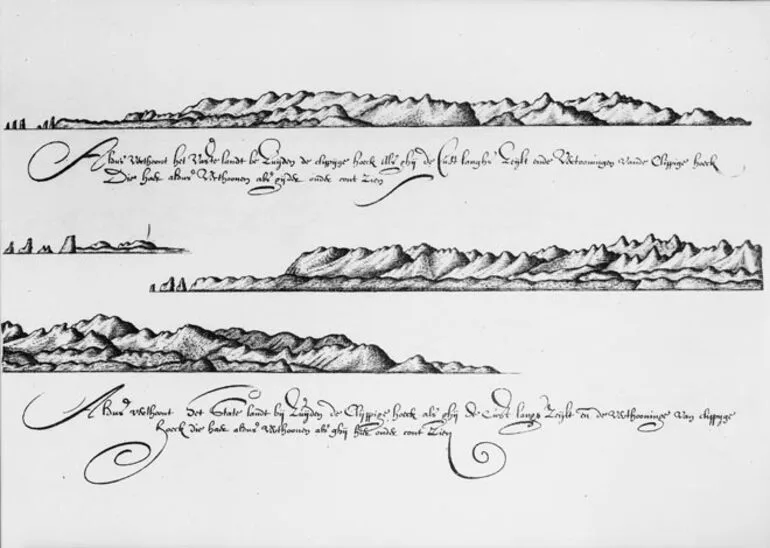 Aldus Verthoont het Vaste landt be Zuyden de clippyge hoeck als ghij de Cust langhs Zeylt ende Vertooningen vande Clippige hoeck
Die haer aldus Verthoonen als onder cont Zien
Aldus verthoont Het State landt bij Zuyden de Clijppige hoeck als ghij de Cust langs Zeylt en de verthooninge van clippyge
hoeck die haer aldus verthoonen als ghij haer onder cont Zien